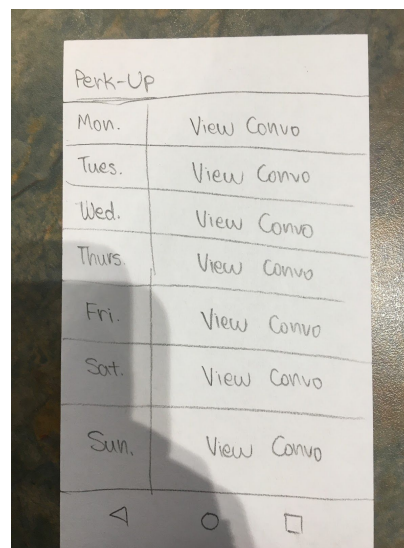 Perk-Up
Mon. View Convo
Tues. View Convo
Wed. View Convo
Thurs. View Convo
Fri. View Convo
Sat. View Convo
Sun. View Convo